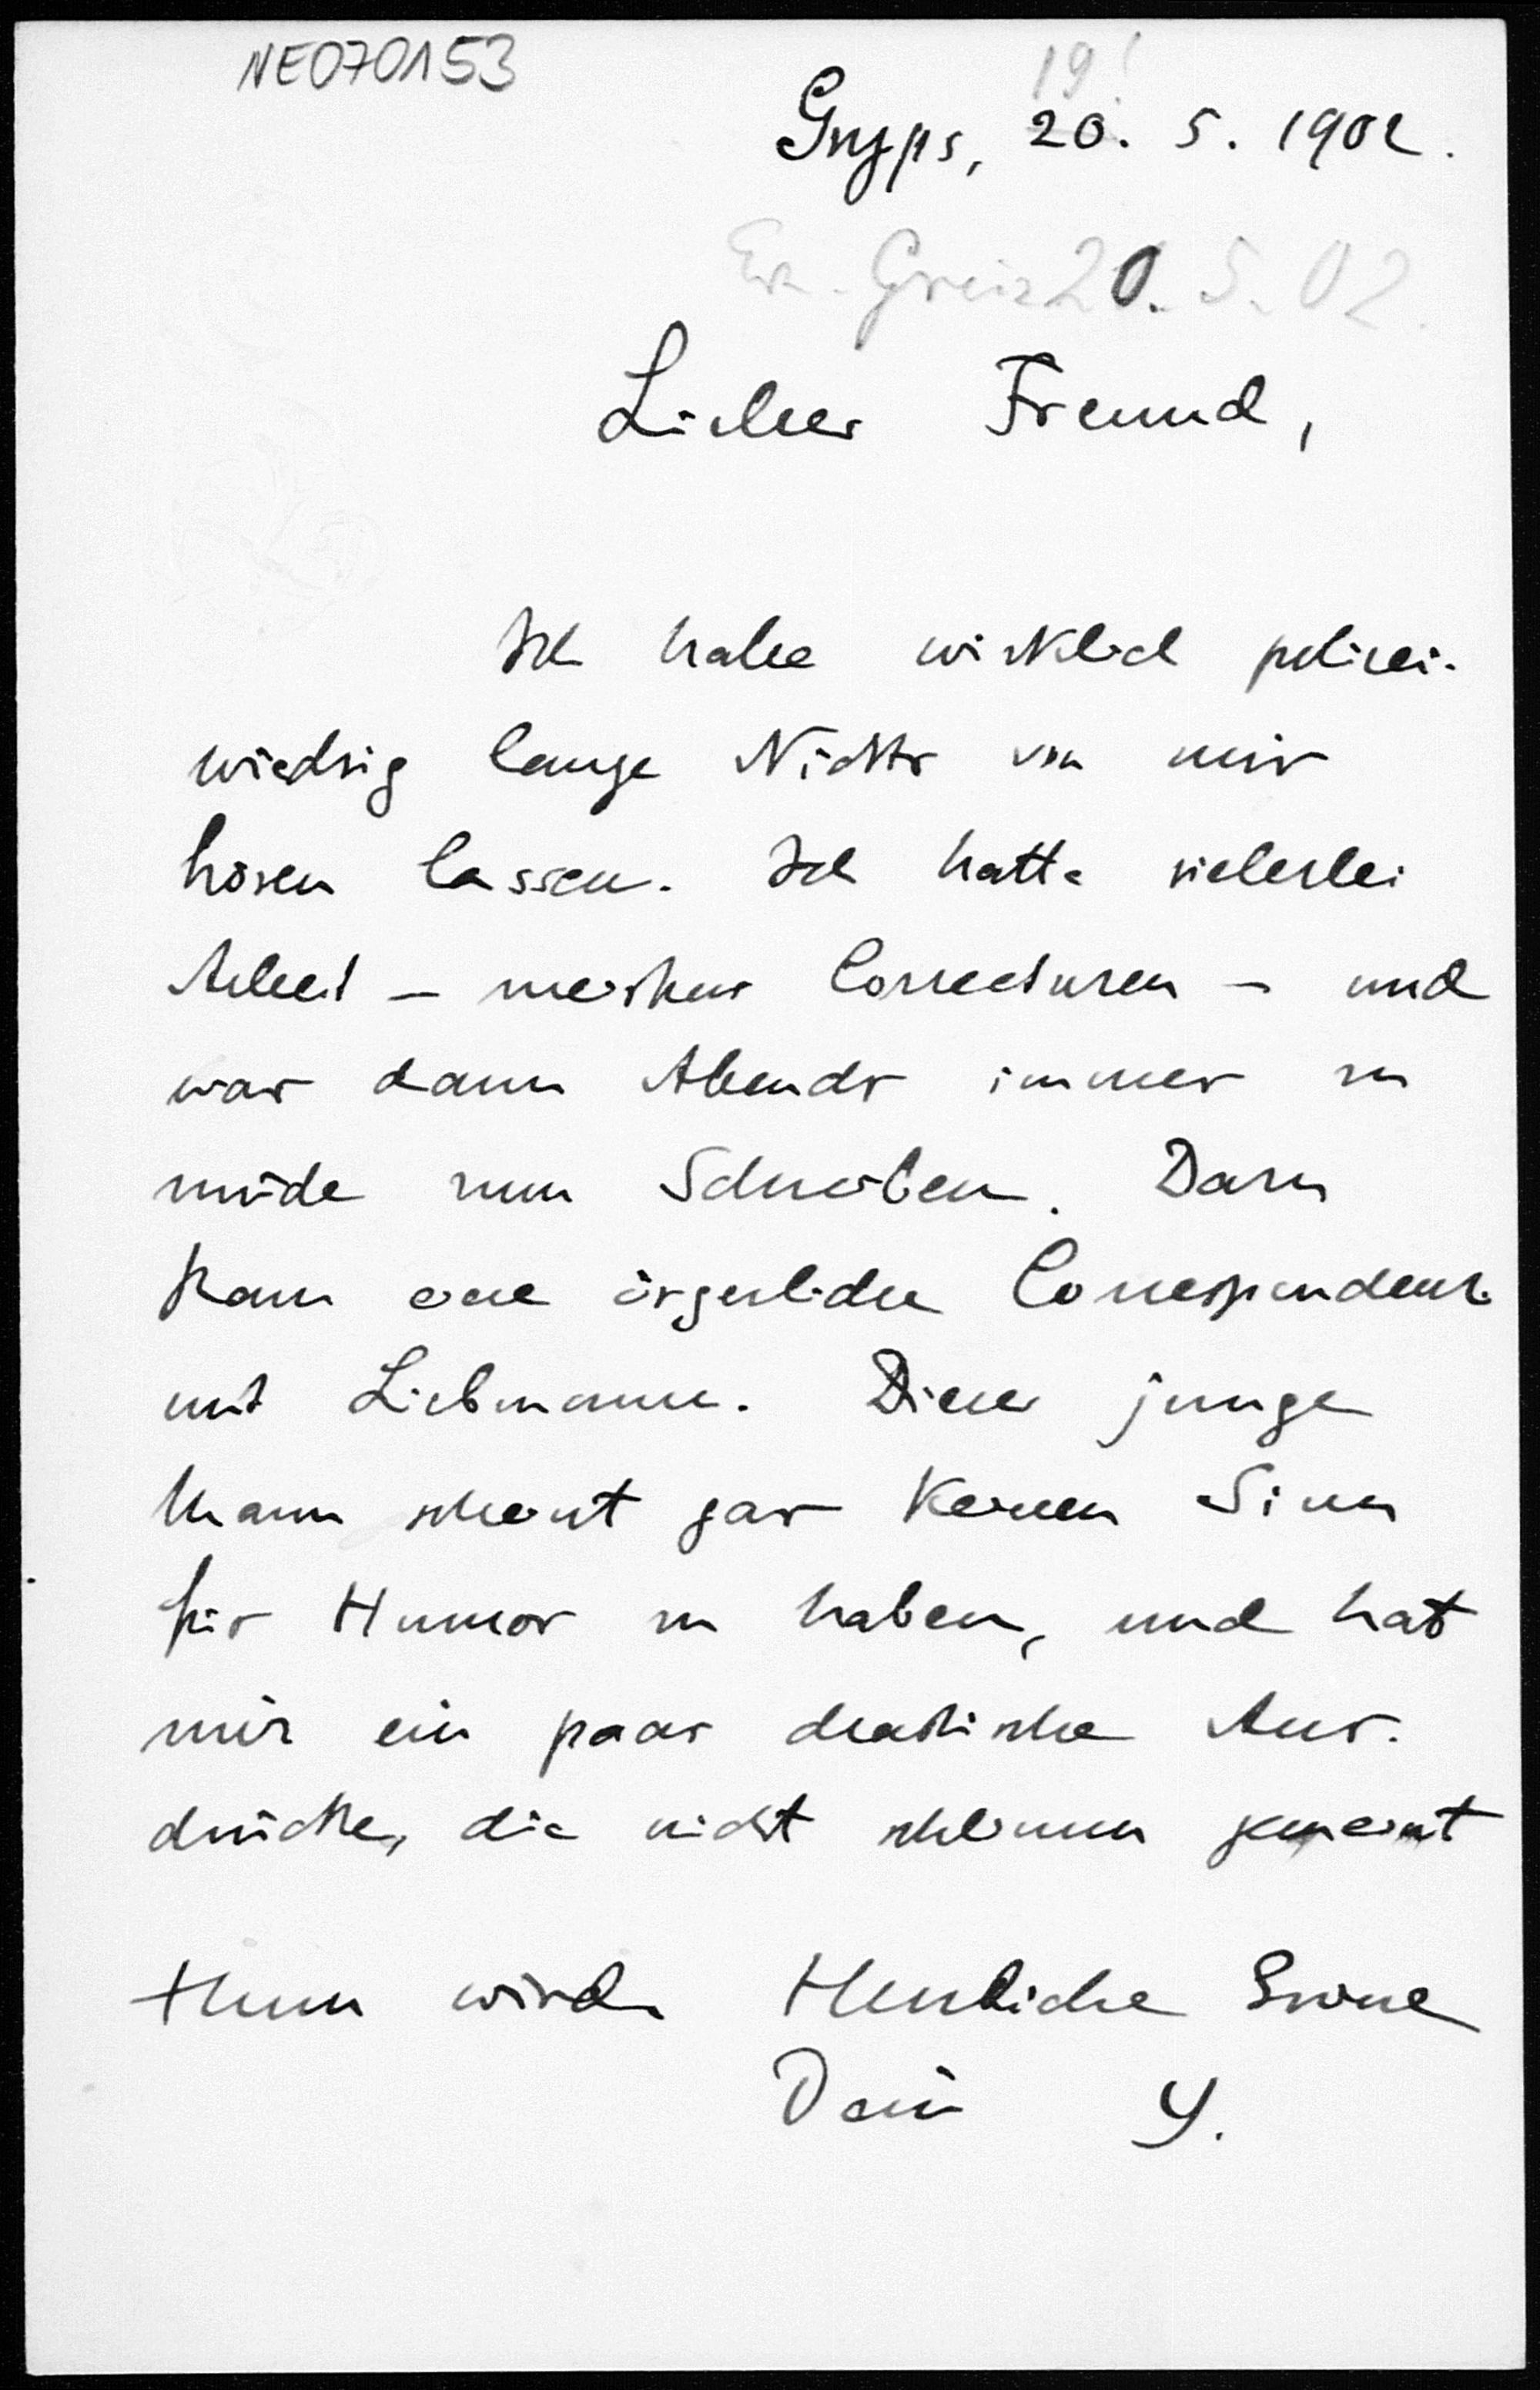 NE070153
19!
Gryps, 20. 5. 1902.
Greiz 20. 5. 02.
Lieber Freund,
Ich habe wirklich polizei-
wiedrig lange Nichts von mir
hören lassen. Ich hatte vielerlei
Arbeit – meistens Correcturen – und
war dann Abends immer zu
müde zum Schreiben. Dazu
kam eine ärgerliche Correspondenz
mit Liebmann. Dieser junge
Mann scheint gar keinen Sinn
für Humor zu haben, und hat
mir ein paar drastische Aus-
drücke, die nicht schlimm gemeint
thun wird. Herzliche Grüsse
Dein